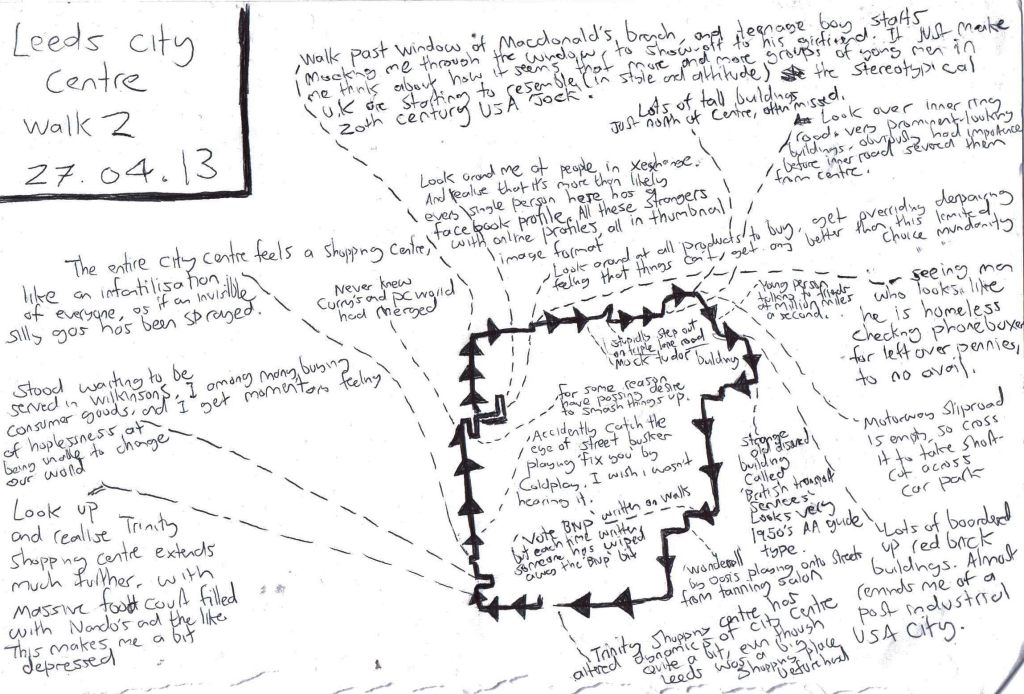 Leeds city
Centre
walk 2
27.04.13
Walk past window of Macdonald's branch, and teenage boy starts
mocking me through the window, to show off to his girlfriend. It just make
me think about how it seems that more and more groups of young men in
U.K are starting to resemble (in style and attitude) the stereotypical
20th century USA Jock.
Lots of tall buildings
Just north of centre, often missed.
Look over inner ring
road & very prominent looking
buildings, obviously had importance
before inner road severed them
from centre.
Look around me at people in
And realise that it's more than likely
every single person here has a
facebook profile. All these strangers
with online profiles, all in thumbnail
image format
Look around at all products to buy, get overriding depressing
feeling that things can't get any better than this limited
choice mundanity
The entire city centre feels a shopping centre,
like an infantilisation
of everyone, as if an invisible
silly gas has been sprayed.
Never knew
Curry's and PC world
had merged
seeing man
who looks like
he is homeless
checking phoneboxes
for left over pennies,
to no avail.
Young person
talking to friends
at million miles
a second.
I stupidly step out
on triple lane road
Mock tudor building
Stood waiting to be
served in Wilkinson's, I among many buying
consumer goods, and I get momentary feeling
of hoplessness at
being unable to change
our world
for some reason
have passing desire
to smash things up.
Accidently catch the
eye of street busker
playing 'fix you' by
Coldplay. I wish I wasn't
hearing it.
Motorway Sliproad
is empty, so cross
it to take short-
cut across
car park
strange
old disused
building
called
'British transport
services'
Looks very
1950's AA guide
type.
Look up
and realise Trinity
Shopping centre extends
much further, with
massive food court filled
with Nando's and the like
This makes me a bit
depressed
'Vote BNP' written on walls
but each time written
someone has wiped
away the 'BNP' bit
Wonderwall
by Oasis playing onto street
from tanning salon
Lots of boarded
up red brick
buildings. Almost
reminds me of a
post industrial
USA city.
Trinity Shopping centre has
altered dynamics of City Centre
quite a bit, even though
Leeds was a big
Shopping place
beforehand